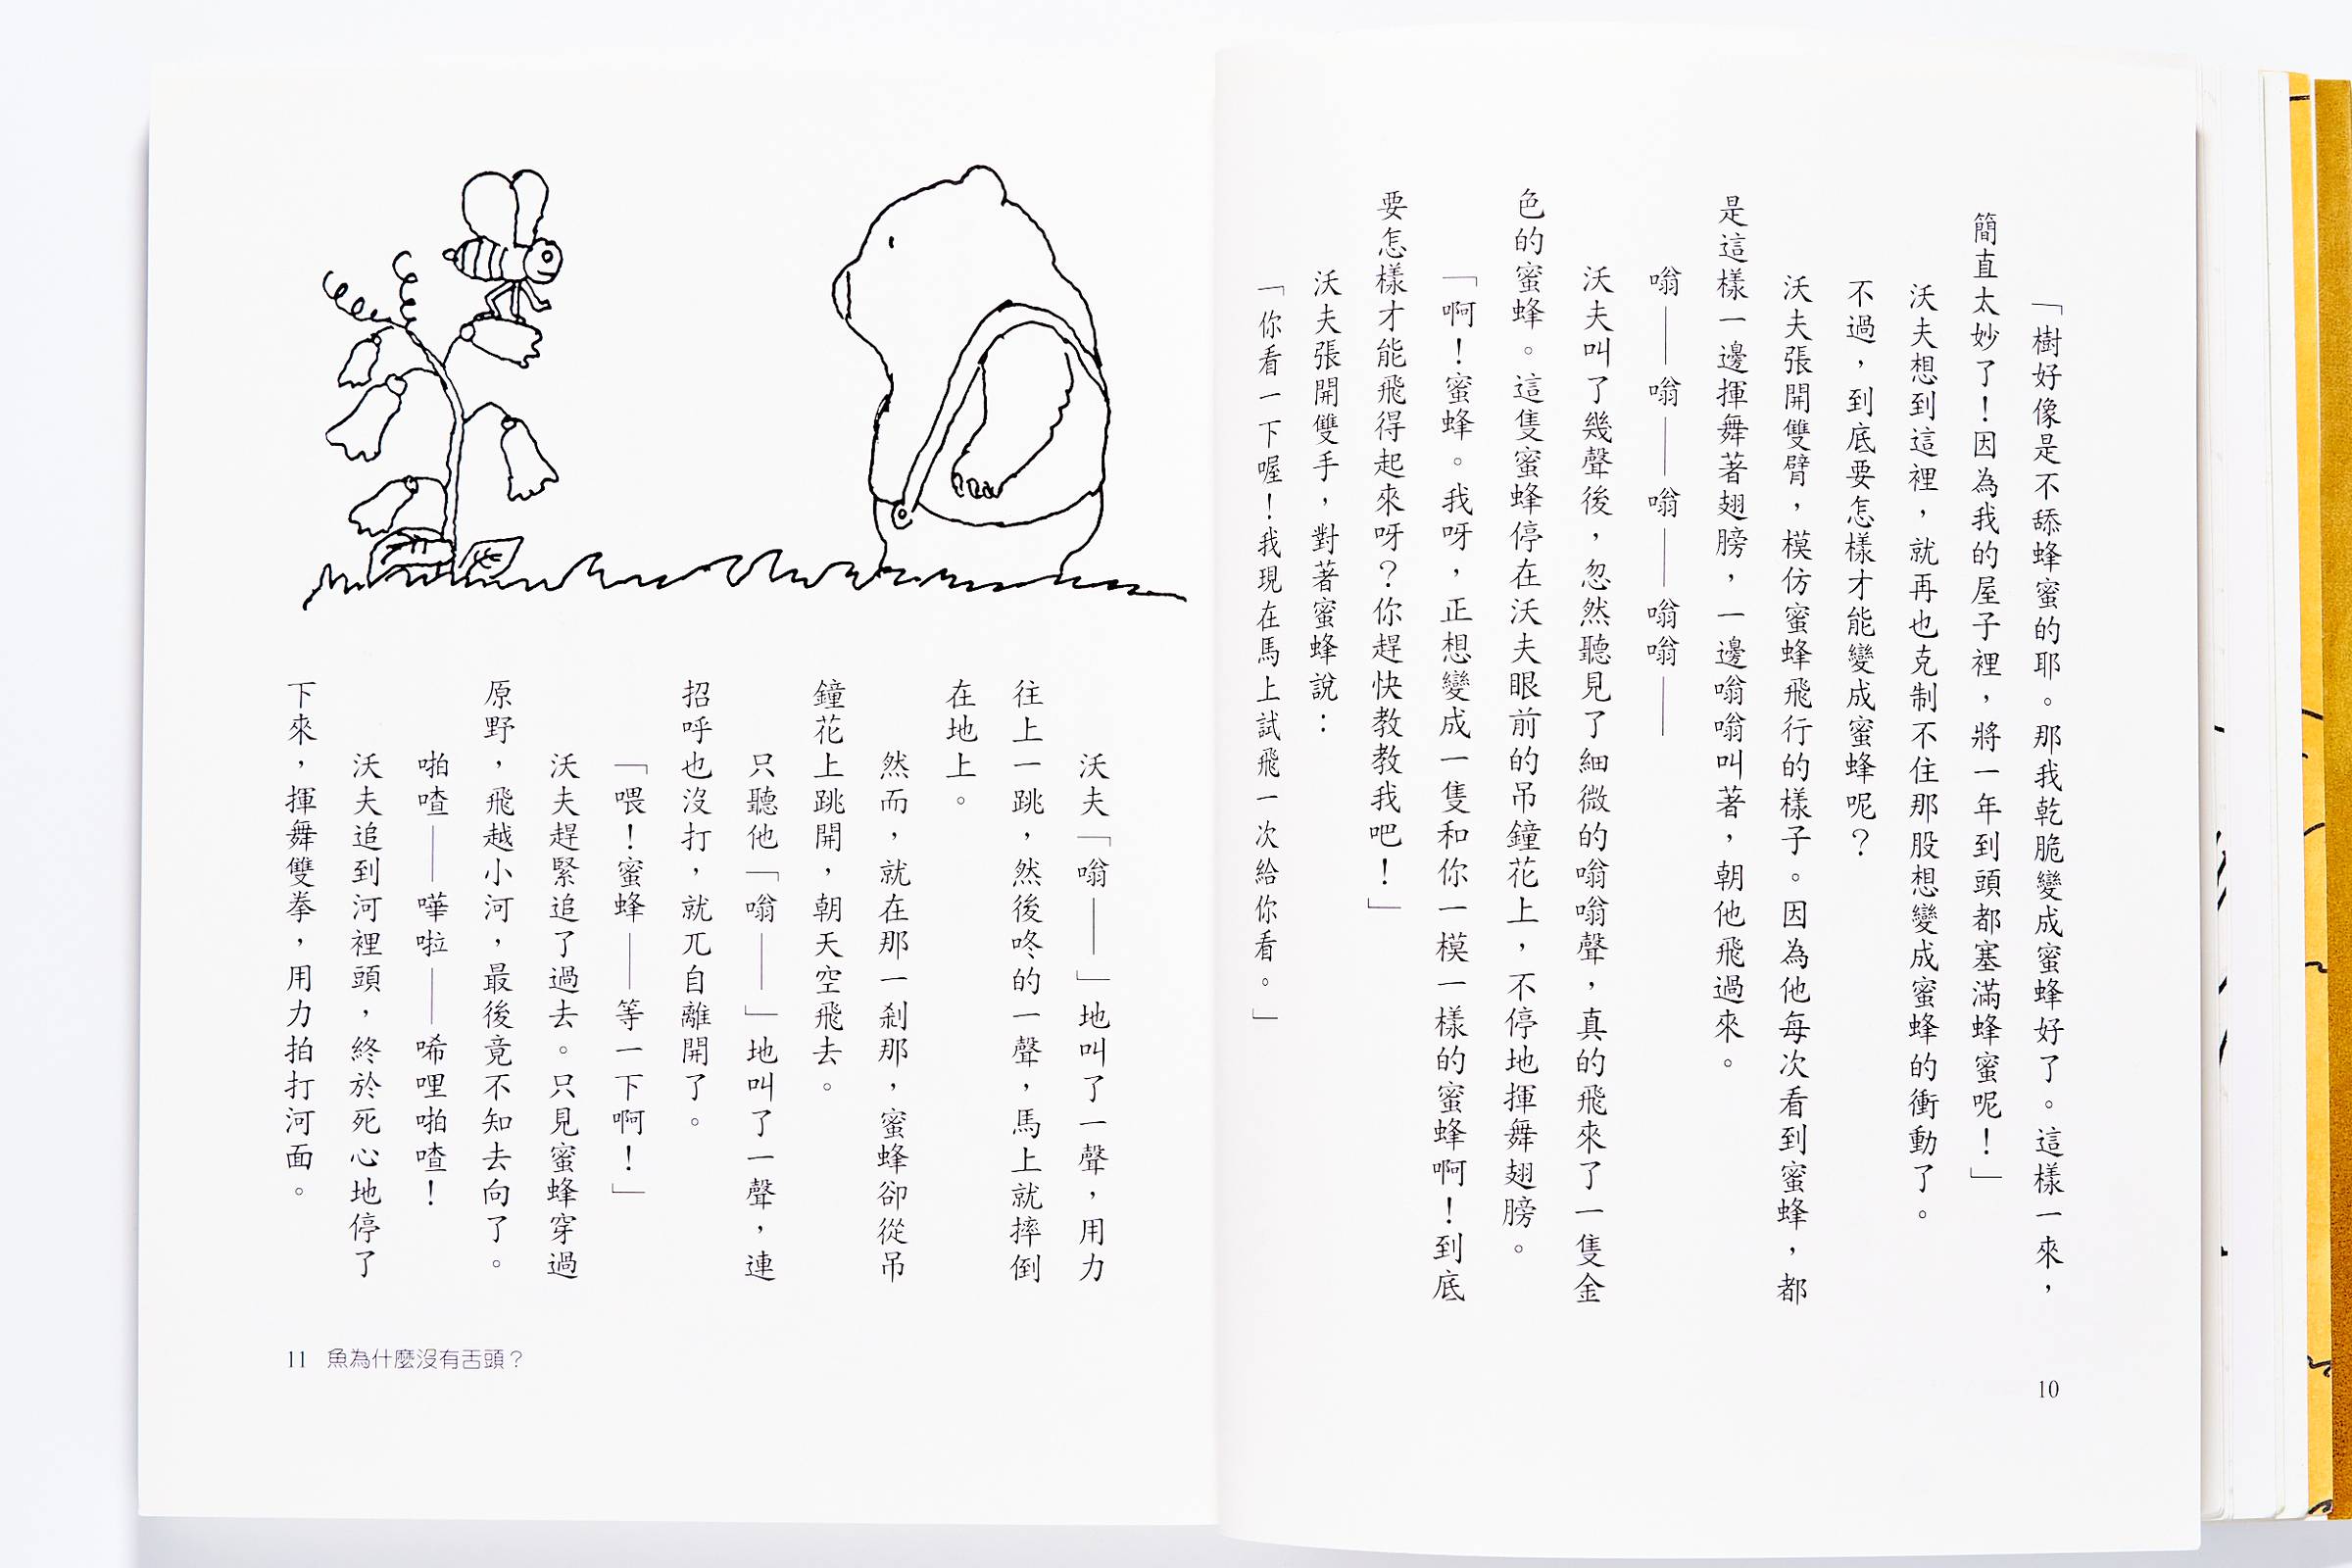 「樹好像是不舔蜂蜜的耶。那我乾脆變成蜜蜂好了。這樣一來，
簡直太妙了！因為我的屋子裡，將一年到頭都塞滿蜂蜜呢！」
沃夫想到這裡，就再也克制不住那股想變成蜜蜂的衝動了。
不過，到底要怎樣才能變成蜜蜂呢？
沃夫張開雙臂，模仿蜜蜂飛行的樣子。因為他每次看到蜜蜂，都
是這樣一邊揮舞著翅膀，一邊嗡嗡叫著，朝他飛過來。
嗡——嗡——嗡——嗡嗡——
沃夫叫了幾聲後，忽然聽見了細微的嗡嗡聲，真的飛來了一隻金
色的蜜蜂。這隻蜜蜂停在沃夫眼前的吊鐘花上，不停地揮舞翅膀。
「啊！蜜蜂。我呀，正想變成一隻和你一模一樣的蜜蜂啊！到底
要怎樣才能飛得起來呀？你趕快教教我吧！」
沃夫張開雙手，對著蜜蜂說：
「你看一下喔！我現在馬上試飛一次給你看。」
10
沃夫「嗡——」地叫了一聲，用力
往上一跳，然後咚的一聲，馬上就摔倒
在地上。
然而，就在那一剎那，蜜蜂卻從吊
鐘花上跳開，朝天空飛去。
只聽他「嗡——」地叫了一聲，連
招呼也沒打，就兀自離開了。
「喂！蜜蜂——等一下啊！」
沃夫趕緊追了過去。只見蜜蜂穿過
原野，飛越小河，最後竟不知去向了。
啪喳——嘩啦——唏哩啪喳！
沃夫追到河裡頭，終於死心地停了
下來，揮舞雙拳，用力拍打河面。
11 魚為什麼沒有舌頭？